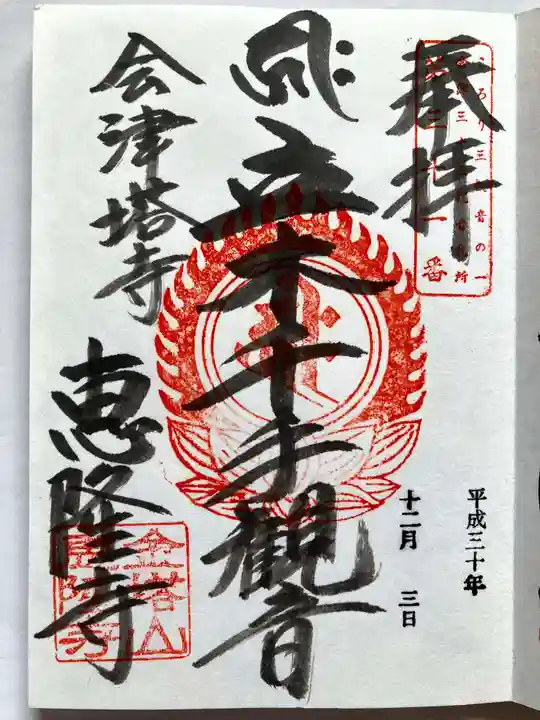 奉拝
ころり三観音の一
番
平成三十年
十二月 三日
立木千手観音
会津塔寺
恵隆寺
金塔山
恵隆寺